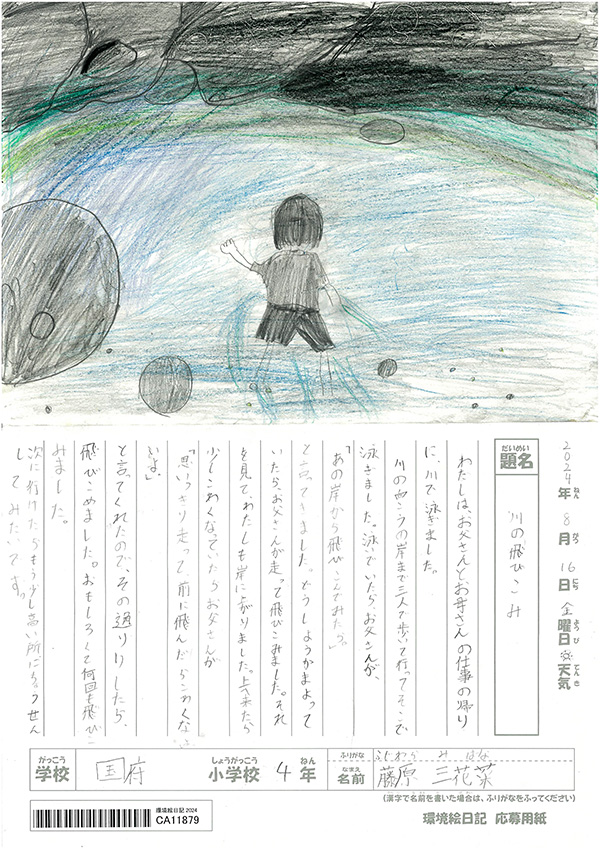 2024年8月16日金曜日 天気
ねん がつ にち ようび てんき
だいめい
題名
川の飛びこみ
わたしは、お父さんとお母さんの仕事の帰り
に、川で泳ぎました。
川の向こうの岸まで三人で歩いて行ってそこで
泳ぎました。泳いでいたら、お父さんが、
「あの岸から飛びこんでみたら。」
と言ってきました。どうしようかまよって
いたら、お父さんが走って飛びこみました。それ
を見て、わたしも岸に上がりました。上に来たら
少しこわくなっていたらお父さんが
「思いっきり走って、前に飛んだらこわくな
いよ。」
と言ってくれたので、その通りにしたら、
飛びこめました。おもしろくて何回も飛びこ
みました。
次に行けたらもう少し高い所にちょうせん
してみたいです。
がっこう しょうがっこう ねん
学校 国府 小学校 4年
ふりがな ふじわら みはな
なまえ
名前 藤原 三花菜
(漢字で名前を書いた場合は、ふりがなをふってください)
環境絵日記 2024
CA11879
環境絵日記 応募用紙